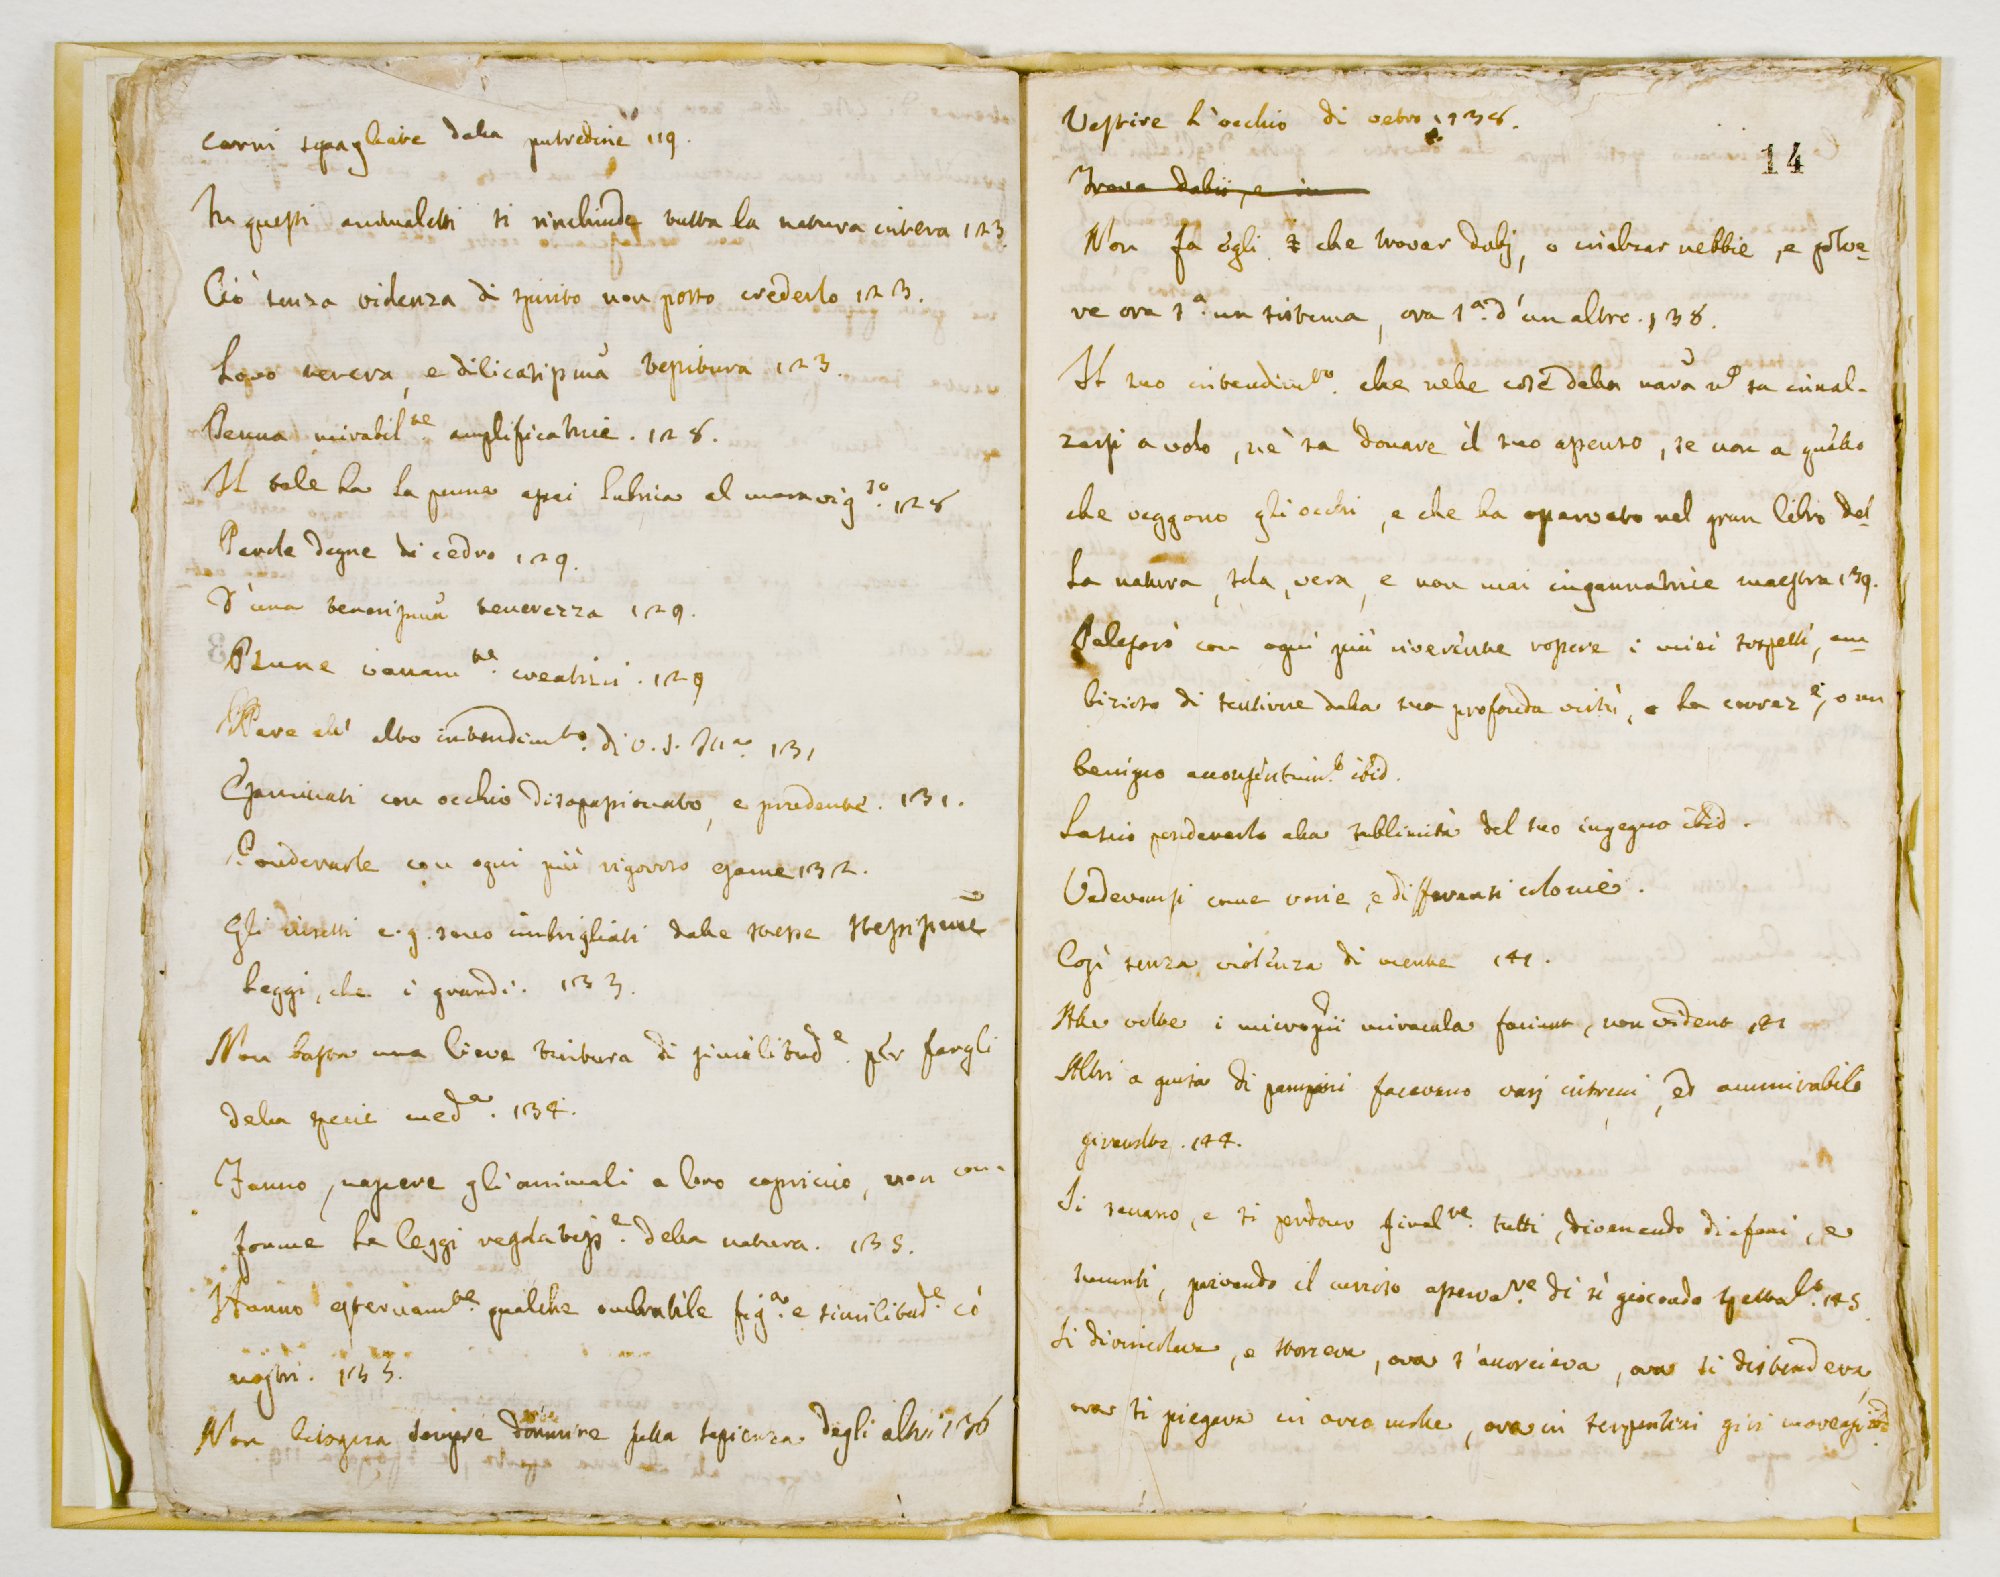 carni spogliate dalla putredine 119.
In questi animaletti si rinchiude tutta la natura intera 123.
Ciò senza violenza di spirito non posso crederlo 123.
Loro tenera, e dilicatissima testitura 123.
Penna mirabilte amplificatrice. 128.
Il tale ha la penna assai lubrica al maravigso. 128
Parole degne di cedro 129.
D'una tenerissima tenerezza 129.
Piume vanamte. creatrici. 129
Pare all' alto intendimto. di V. S. Illa. 131
Esaminati con occhio disappassionato, e prudente. 131.
Ponderarle con ogni più rigoroso esame 132.
Gli insetti e. g. sono imbrigliati dalle stesse stessissime
leggi, che i grandi. 133.
Non basta una lieve tintura di similitude. per fargli
della specie meda. 134.
Fanno nascere gli animali a loro capriccio, non con-
forme le leggi regolatisse. della natura. 135.
Hanno esternamte. qualche ombratile figa. e similitude. cò
nostri. 135.
Non bisogna sempre dormire sulla sapienza degli altri 136
Vestire l'occhio di vetro 138.
14
Trova dubii, e in
Non fa egli che trovar dubj, o inalzar nebbie, e polve-
re ora sa. un sistema, ora sa. d'un altro. 138.
Il suo intendimto. che nelle cose della natura no sa innal-
zarsi a volo, nè sa donare il suo assenso, se non a quello
che veggono gli occhi, e che ha osservato nel gran libro del-
la natura, sola, vera, e non mai ingannatrice maestra 139.
Paleserò con ogni più riverente rossore i miei sospetti, am-
bizioso di sentirne dalla sua profonda virtù, o la correze, o un
benigno acconsentimto ibid.
Lascio ponderarlo alla sublimità del suo ingegno ibid.
Vedevansi come varie, e differenti colonie.
Così senza violenza di mente 141.
Alle volte i microspii miracula faciunt, non vident 141
Altri a guisa di pampini facevano varj intrecci, ed ammirabile
giravolte. 144.
Si secano, e si perdono finalte. tutti, divenendo diafani, e
smunti, privando il curioso osservare. di sì giocondo spettalo. 145
Si divincolava, e storceva, ora s'accorciava, ora si distendeva
ora si piegava in arco molle, ora in serpentini giri moveasi ibid